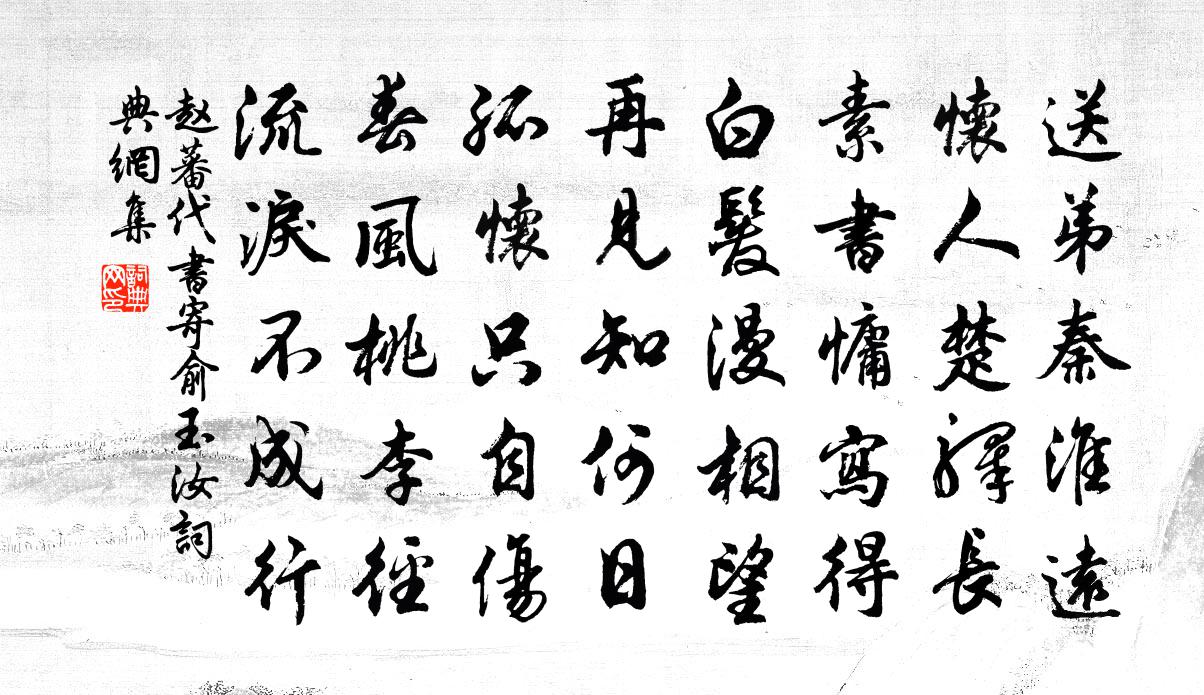 送弟秦淮遠
懷人楚驛長
素書慵寫得
白髮漫相望
再見知何日
孤懷只自傷
春風桃李徑
流淚不成行
赵蕃代書寄俞玉汝詞
典網集
詞典網印